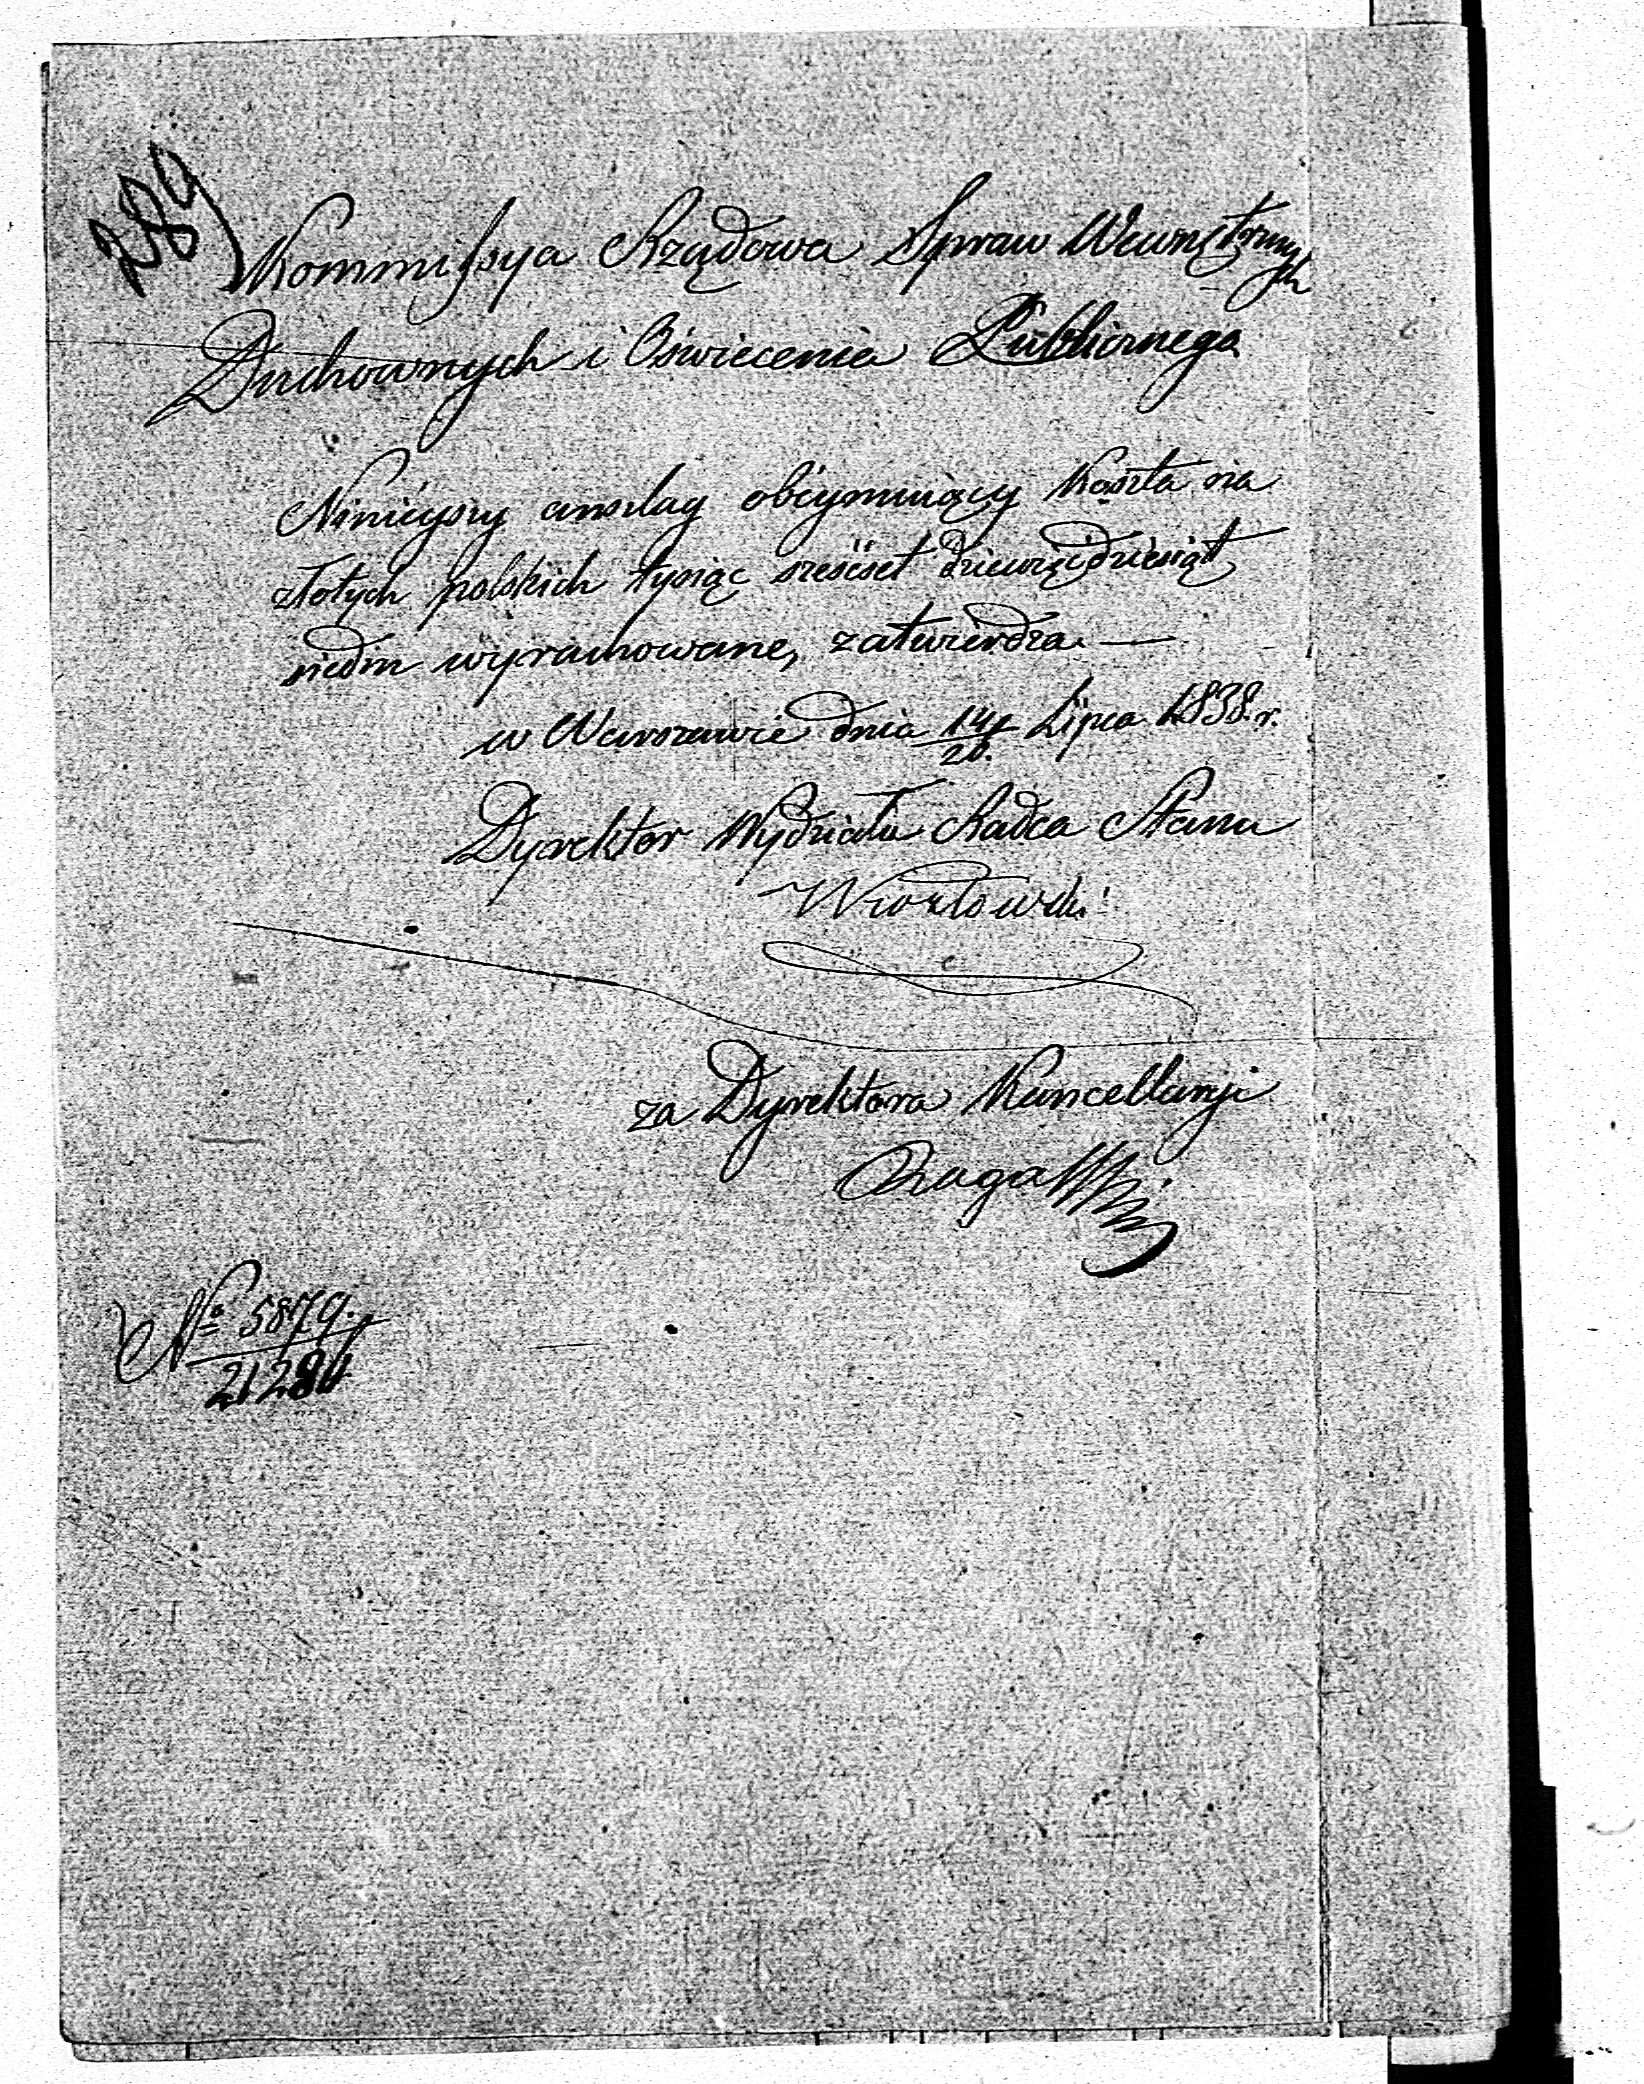 289
Kommissya Rządowa Spraw Wewnętrznych
Duchownych i Oświecenia Publicznego
Ninieyszy anszlag obeymuiący Koszta na
złotych polskich tysiąc sześćset dziewięćdziesiąt
siedm wyrachowane, zatwierdza. —
w Warszawie dnia 14/26. Lipca 1838. r.
Dyrektor Wydziału Radca Stanu
za Dyrektora Kancellaryi
No 5879.